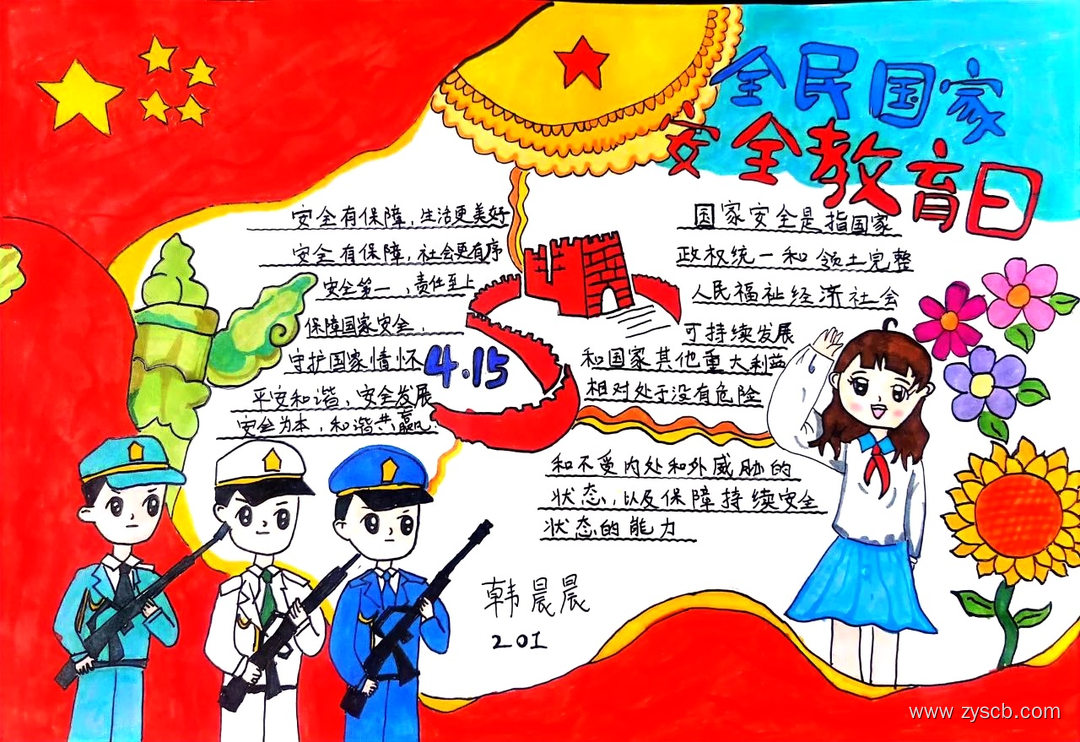 全民国家
安全教育日
安全有保障，生活更美好
安全有保障，社会更有序
安全第一，责任至上
保障国家安全，
守护国家情怀
平安和谐，安全发展
安全为本，和谐共赢.
4.15
国家安全是指国家
政权统一和领土完整
人民福祉经济社会
可持续发展
和国家其他重大利益
相对处于没有危险
和不受内处和外威胁的
状态，以及保障持续安全
状态的能力
韩晨晨
201
www.zyscb.com